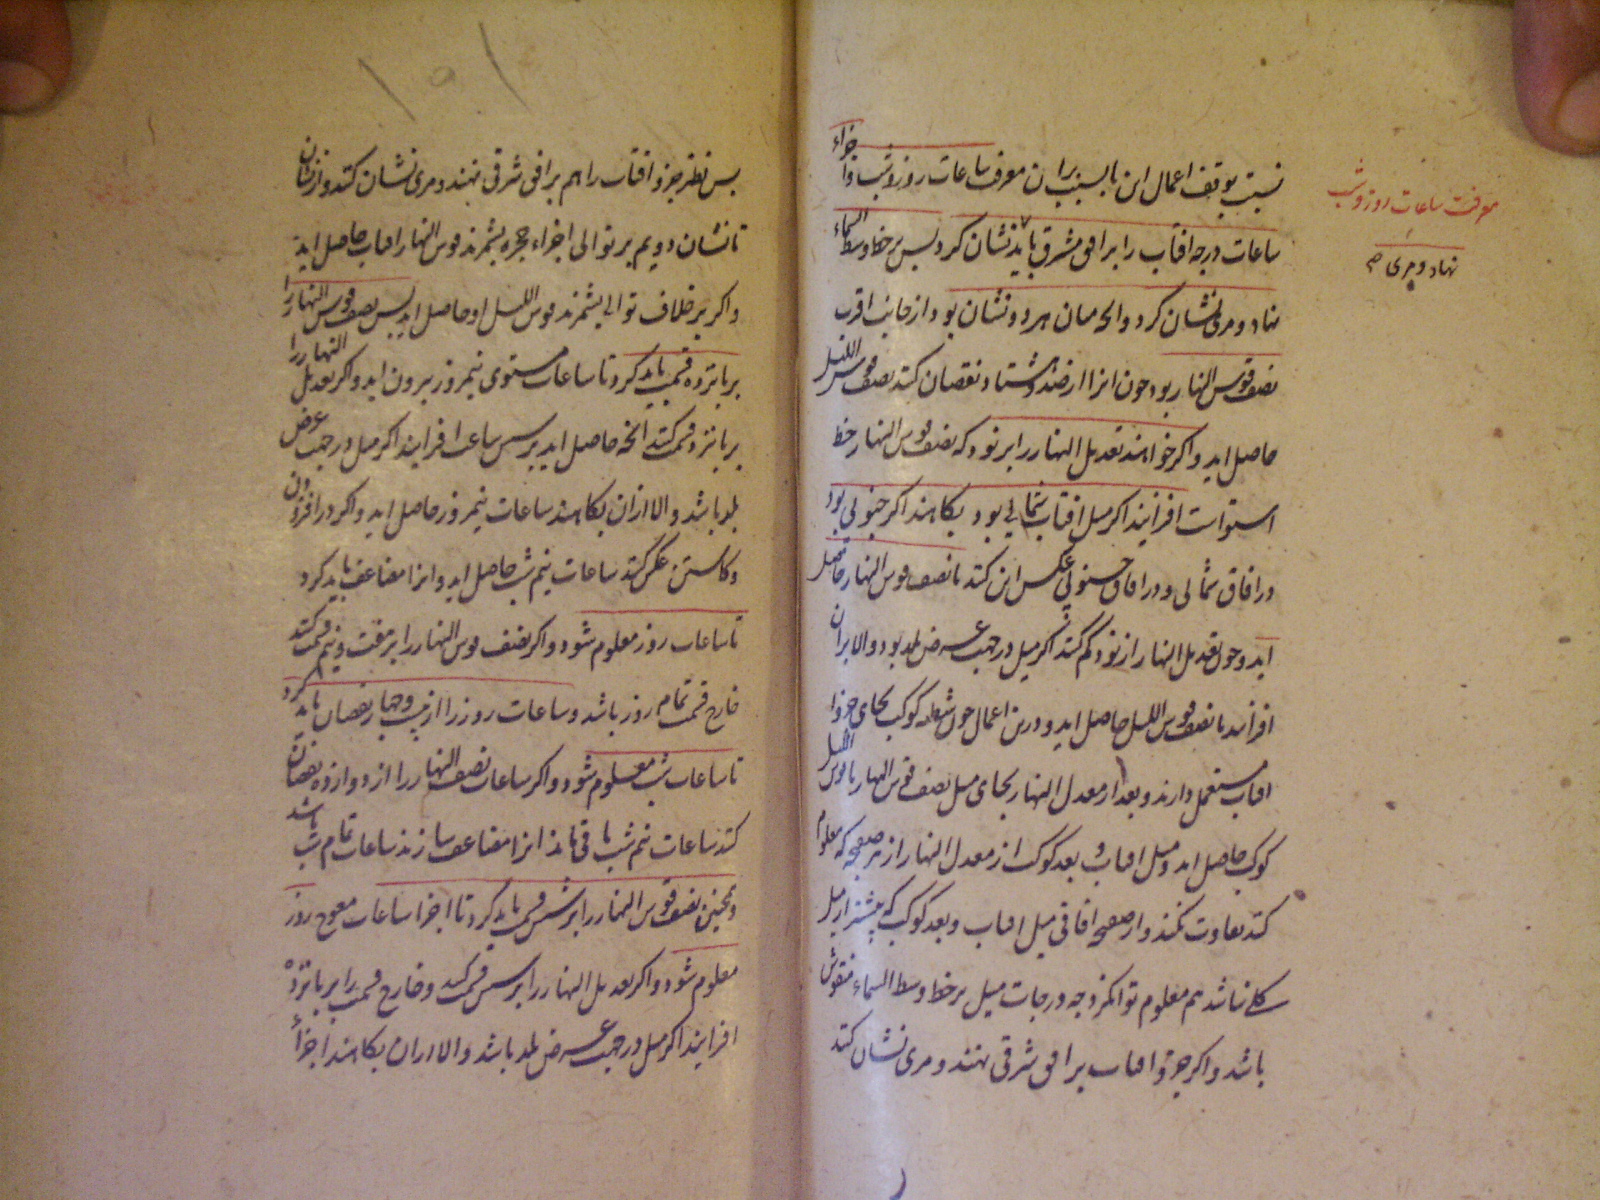 معرفت ساعات روز و شب
نهاد و مری صح
نسبت بوقف اعمال این معرفت ساعات روز و شب و اجزاء
ساعات درجه افتاب را برافق مشرق باید نشان کرد بس بر خط وسط السماء
نهاد و مری نشان کرد و انچه میان هر دو نشان بود از جانب اقرب
نصف قوس النهار بود چون انرا از صد و هشتاد نقصان کنند نصف قوس اللیل
حاصل اید و اکر خواهند تعدیل النهار را بر نود که نصف قوس النهار خط
استواست افزایند اکر میل افتاب شمالی بود بکاهند اکر جنوبی بود
در افاق شمالی و در افاق جنوبی عکس این کنند تا نصف قوس النهار حاصل
اید و چون تعدیل النهار از نود کم کنند اکر میل در جهت عرض بلد بود و الا بران
افزایند تا نصف قوس اللیل حاصل اید و درین اعمال چون شظیه کوکب بجای جزو
افتاب مستعمل دارند و بعد از معدل النهار بجای میل نصف قوس النهار یا قوس اللیل
کوکب حاصل اید و میل افتاب و بعد کوکب از معدل النهار از هر صفحه که معلوم
کنند تفاوت نکند و از صفحه افاقی میل افتاب و بعد کوکب که بیشتر از میل
کلی نباشد هم معلوم توان کرد چه درجات میل بر خط وسط السماء منقوش
باشد و اکر جزو افتاب بر افق شرقی نهند و مری نشان کنند
۱۰۱
بس نظیر جزو افتاب را هم بر افق شرقی نهند و مری نشان کنند و از نشان
تا نشان دویم بر توالی اجزاء حجره بشمرند قوس النهار افتاب حاصل اید
و اکر بر خلاف توالی بشمرند قوس اللیل او حاصل اید بس نصف قوس النهار را
بر بانزده قسمت باید کرد تا ساعات مستوی نیمروز بیرون اید و اکر تعدیل النهار را
بر بانزده قسمت کنند انچه حاصل اید بر شش ساعت افزایند اکر میل در جهت عرض
بلد باشد و الا ازان بکاهند ساعات نیمروز حاصل اید و اکر در افزودن
و کاستن عکس کنند ساعات نیم شب حاصل اید و انرا مضاعف باید کرد
تا ساعات روز معلوم شود و اکر نصف قوس النهار را بر هفت و نیم قسمت کنند
خارج قسمت تمام روز باشد و ساعات روز را از بیست و چهار نقصان باید کرد
تا ساعات شب معلوم شود و اکر ساعات نصف النهار را از دوازده نقصان
کنند ساعات نیم شب باقی ماند انرا مضاعف سازند ساعات تمام شب باشد
و همچنین نصف قوس النهار را بر شش قسمت باید کرد تا اجزا ساعات معوج روز
معلوم شود و اکر تعدیل النهار را بر شش قسمت کنند و خارج قسمت را بر بانزده
افزایند اکر میل در جهت عرض بلد باشد و الا ازان بکاهند اجزاء